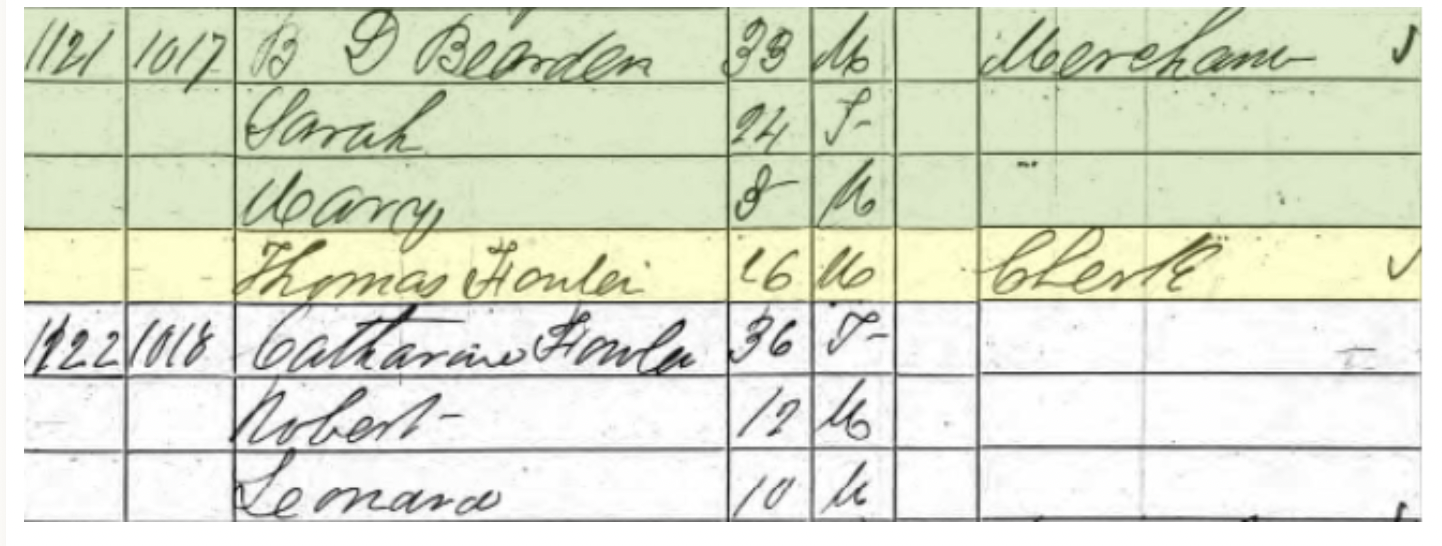 1121 1017 B D Bearden 33 M Merchant
Sarah 24 F
Mary 8 M
Thomas Fowler 16 M Clerk
1122 1018 Catharine Fowler 36 F
Robert 12 M
Leonard 10 M